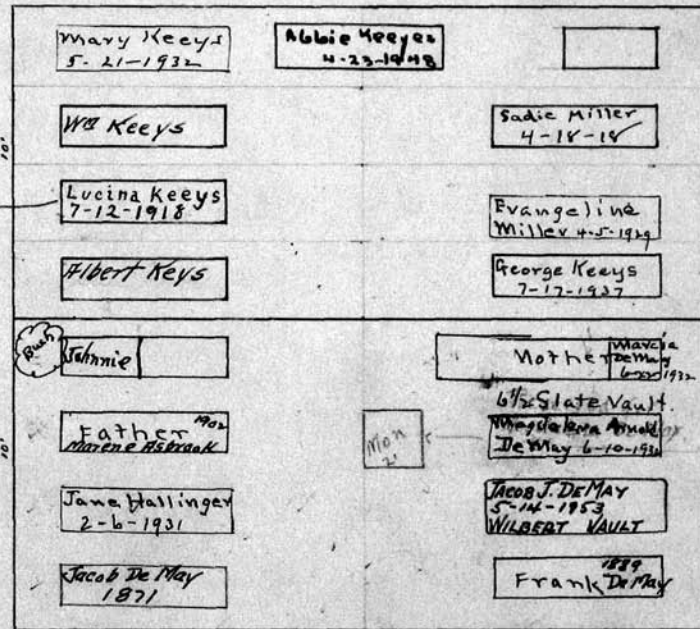 Mary Keeys
5-21-1932
Abbie Keeyes
4-23-1948
Wm Keeys
Sadie Miller
4-18-18
10'
Lucina Keeys
7-12-1918
Evangeline
Miller 4-5-1929
Albert Keys
George Keeys
7-17-1937
Bush
Johnnie
Mother
Marcia
DeMay
1932
6 1/2 Slate Vault
Father 1902
Marene Asbrook
Mon
2'
Magdalena Arnold
DeMay 6-10-193
10'
Jane Hallinger
2-6-1931
JACOB J. DEMAY
5-14-1953
WILBERT VAULT
Jacob De May
1871
1889
Frank DeMay